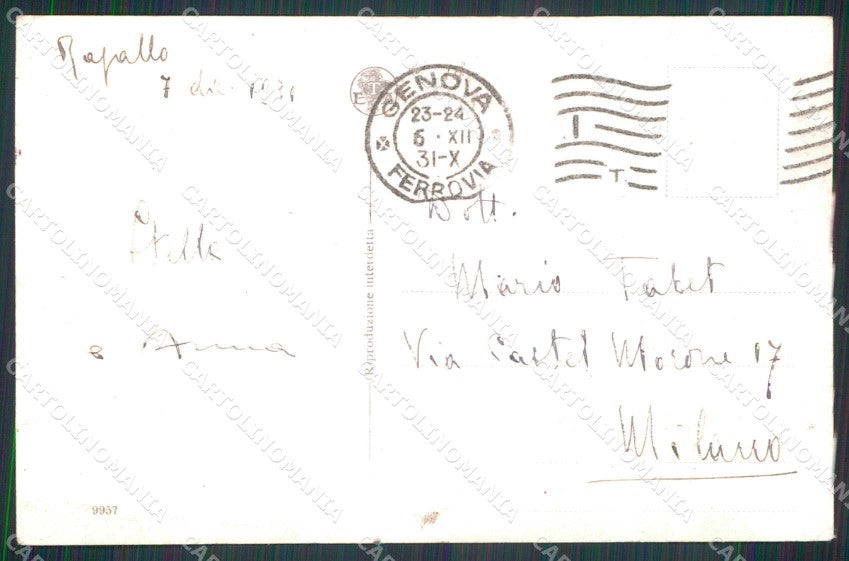 Rapallo
7 dic. 1931
GENOVA
23-24
6 · XII
31-X
FERROVIA
I
T
Dott.
Mario Fabet
Via Castel Morone 17
Milano
Stella
e Anna
Riproduzione interdetta
9957
CARTOLINOMANIA